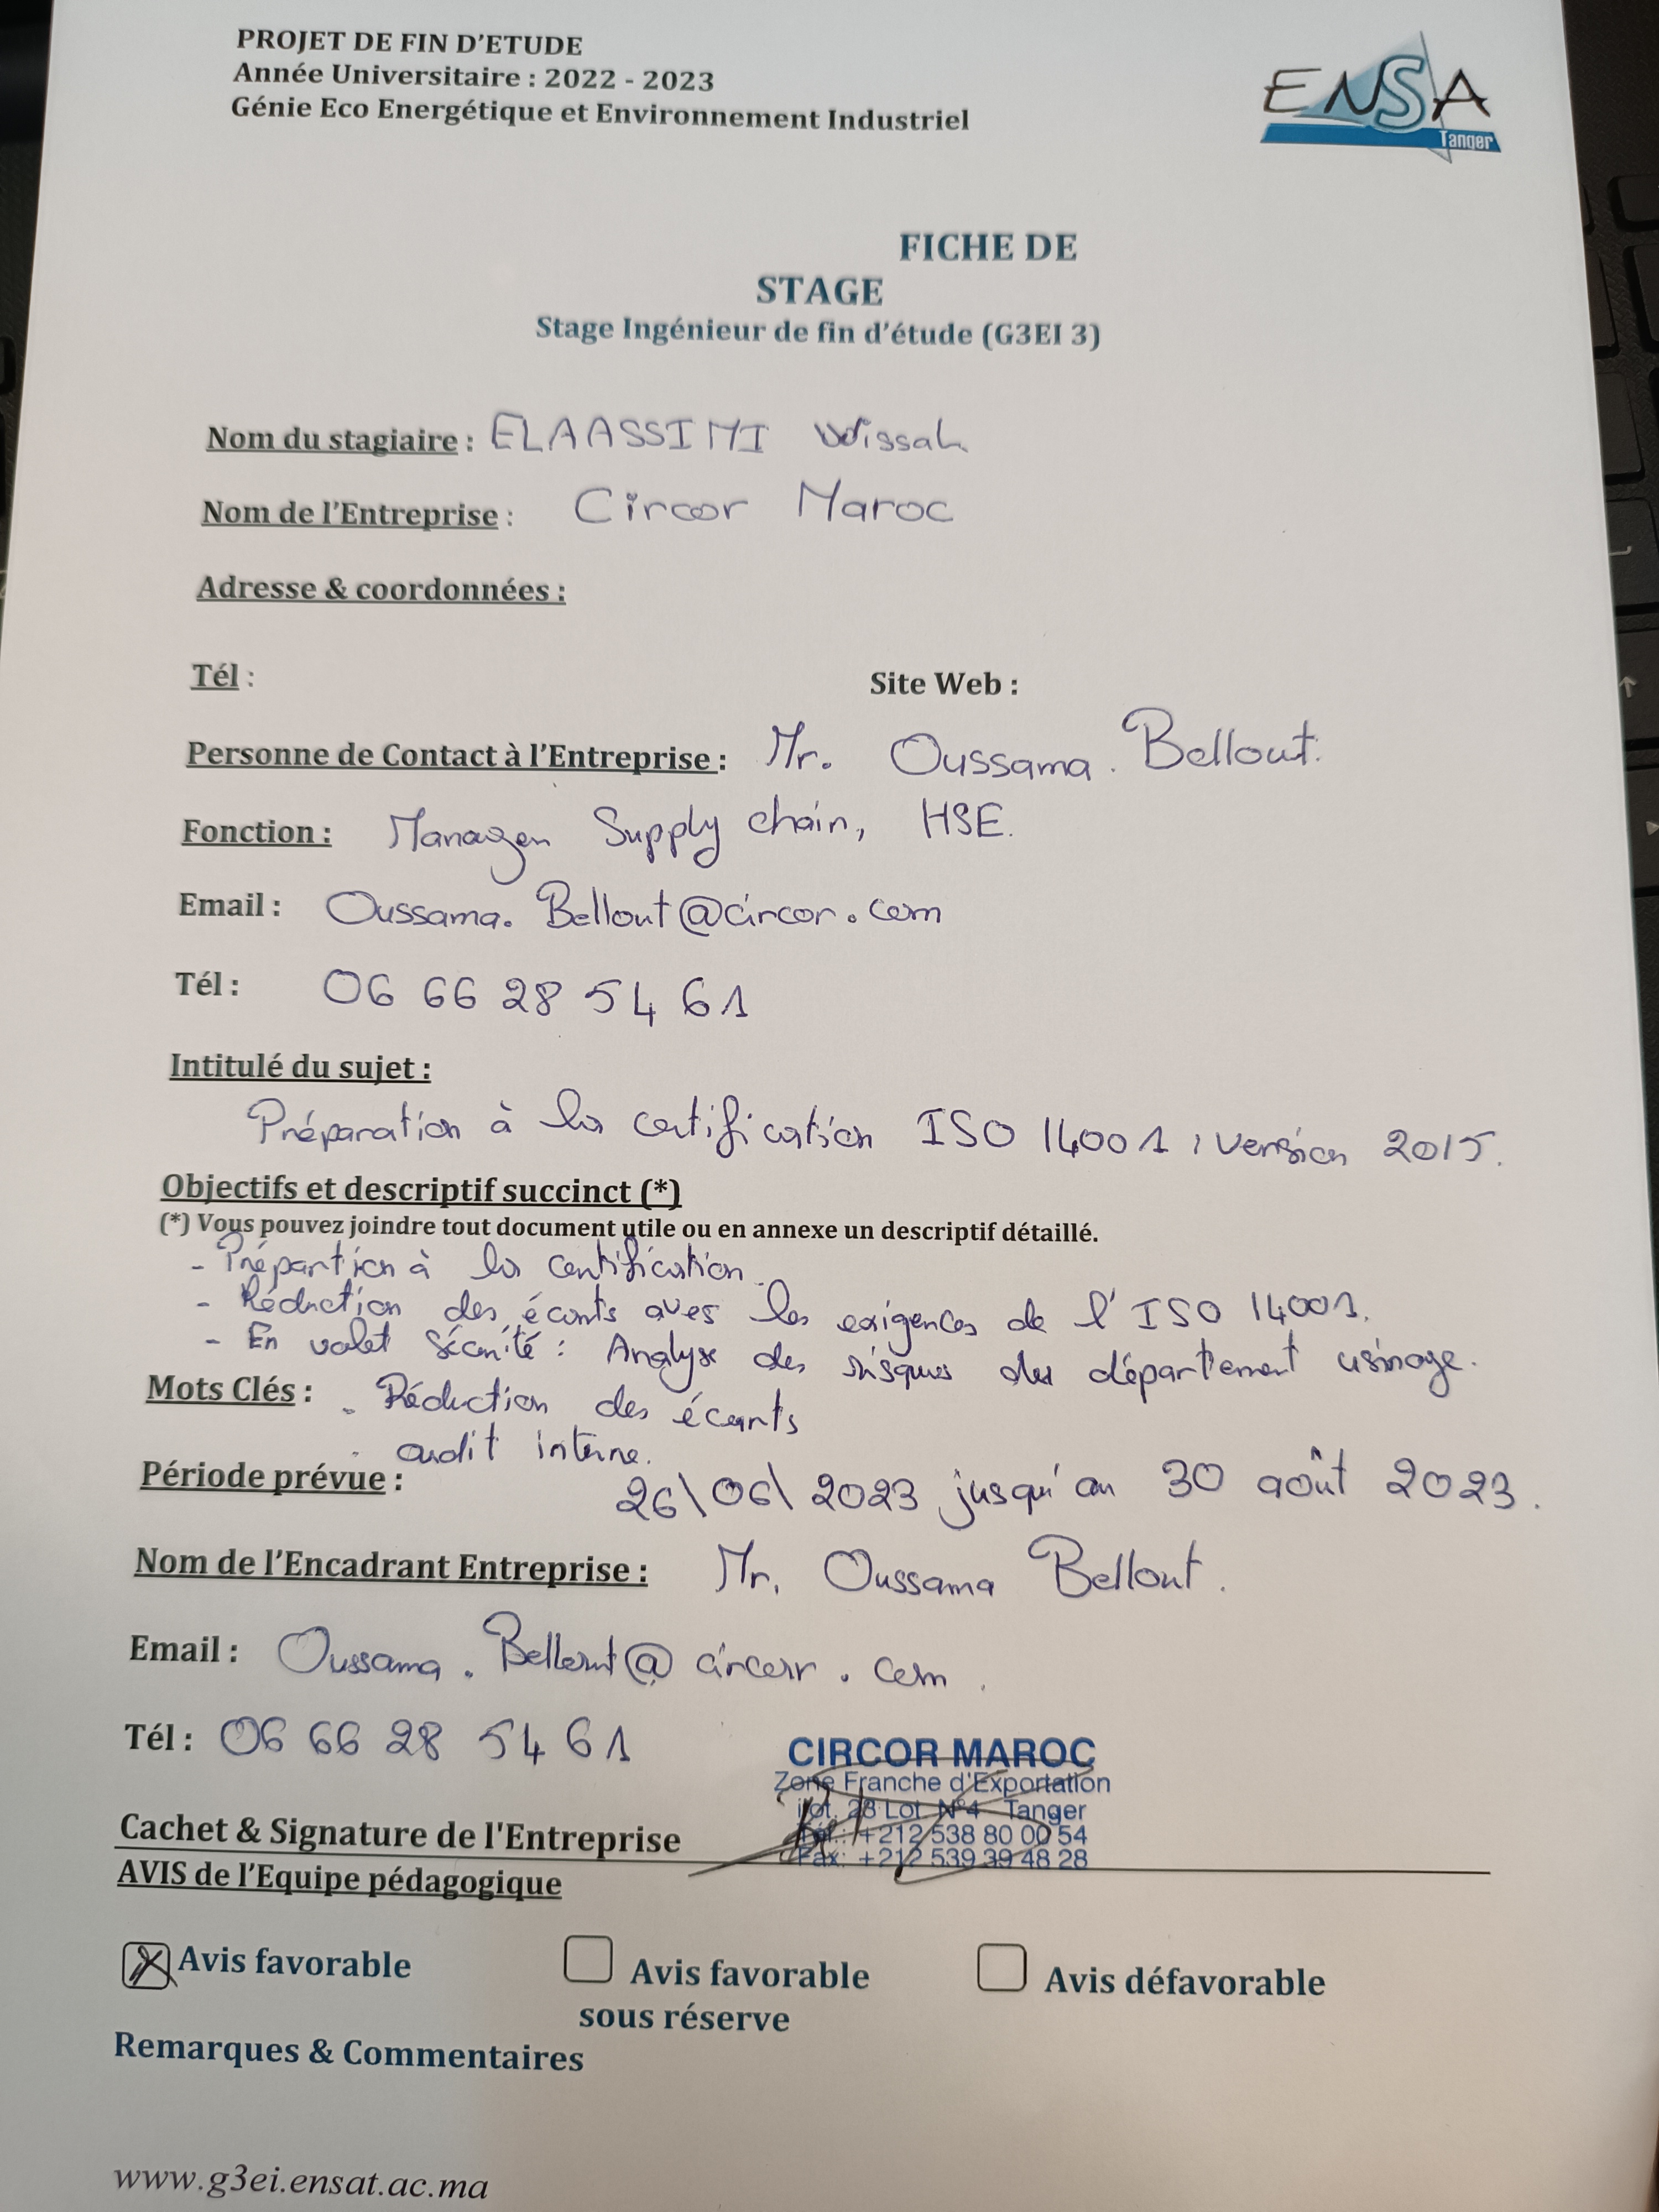 PROJET DE FIN D'ETUDE
Année Universitaire : 2022 - 2023
Génie Eco Energétique et Environnement Industriel
ENSA
Tanger
FICHE DE
STAGE
Stage Ingénieur de fin d'étude (G3EI 3)
Nom du stagiaire : ELAASSIMI Wissah
Nom de l'Entreprise : Circor Maroc
Adresse & coordonnées :
Tél : Site Web :
Personne de Contact à l'Entreprise : Mr. Oussama. Bellout.
Fonction : Manager Supply chain, HSE.
Email : Oussama. Bellout@circor.com
Tél : 06 66 28 54 61
Intitulé du sujet :
Préparation à la certification ISO 14001, version 2015.
Objectifs et descriptif succinct (*)
(*) Vous pouvez joindre tout document utile ou en annexe un descriptif détaillé.
- Prépartion à la certification.
- Réduction des écarts aves les exigences de l'ISO 14001.
- En volet Sécurité : Analyse des risques du département usinage.
Mots Clés : - Réduction des écarts
- audit interne.
Période prévue : 26\06\2023 jusqu'au 30 août 2023.
Nom de l'Encadrant Entreprise : Mr. Oussama Bellout.
Email : Oussama. Bellout@circor.com.
Tél : 06 66 28 54 61
CIRCOR MAROC
Zone Franche d'Exportation
ilot. 28 Lot N°4 Tanger
Tél.: +212 538 80 00 54
Fax: +212 539 39 48 28
Cachet & Signature de l'Entreprise
AVIS de l'Equipe pédagogique
Avis favorable Avis favorable sous réserve Avis défavorable
Remarques & Commentaires
www.g3ei.ensat.ac.ma